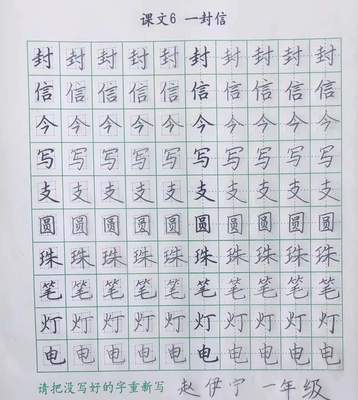 课文6 一封信
封封封封封封封封封
信信信信信信信信信
今今今今今今今今今
写写写写写写写写写
支支支支支支支支支
圆圆圆圆圆圆圆圆圆
珠珠珠珠珠珠珠珠珠
笔笔笔笔笔笔笔笔笔
灯灯灯灯灯灯灯灯灯
电电电电电电电电电
请把没写好的字重新写 赵伊宁 一年级